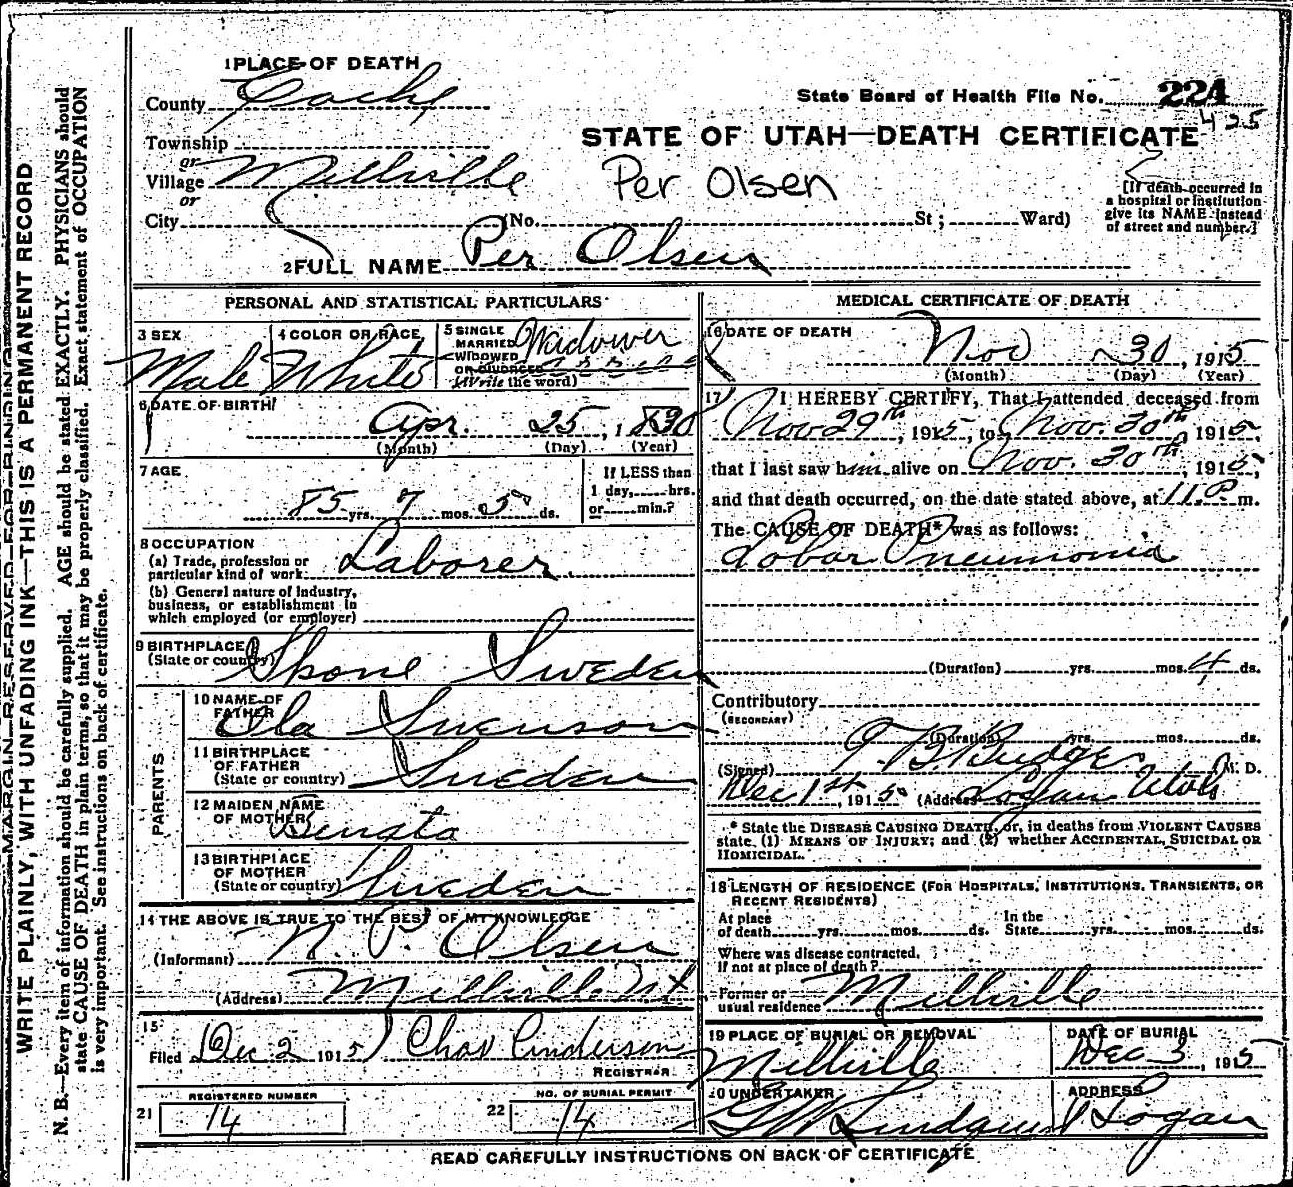 1 PLACE OF DEATH
County Cache
State Board of Health File No. 224
425
Township
or
STATE OF UTAH—DEATH CERTIFICATE
Village Millville
or
Per Olsen
City (No. St; Ward)
[If death occurred in
a hospital or institution
give its NAME instead
of street and number.]
2 FULL NAME Per Olsen
PERSONAL AND STATISTICAL PARTICULARS
3 SEX
Male
4 COLOR OR RACE
White
5 SINGLE
MARRIED
WIDOWED
OR DIVORCED
(Write the word)
Widower
6 DATE OF BIRTH
Apr. 25, 1830
(Month) (Day) (Year)
7 AGE
85 yrs. 7 mos. 5 ds.
If LESS than
1 day, hrs.
or min.?
8 OCCUPATION
(a) Trade, profession or
particular kind of work: Laborer.
(b) General nature of Industry,
business, or establishment in
which employed (or employer)
9 BIRTHPLACE
(State or country) Skone Sweden
PARENTS
10 NAME OF
FATHER
Ola Swenson
11 BIRTHPLACE
OF FATHER
(State or country) Sweden
12 MAIDEN NAME
OF MOTHER Benata
13 BIRTHPLACE
OF MOTHER
(State or country) Sweden
14 THE ABOVE IS TRUE TO THE BEST OF MY KNOWLEDGE
(Informant) N. P. Olsen
(Address) Millville Ut
15
Filed Dec 2 1915 Chas Anderson
REGISTRAR
REGISTERED NUMBER
21 14
NO. OF BURIAL PERMIT
22 14
MEDICAL CERTIFICATE OF DEATH
16 DATE OF DEATH
Nov 30, 1915
(Month) (Day) (Year)
17 I HEREBY CERTIFY, That I attended deceased from
Nov 29th, 1915, to Nov. 30th, 1915,
that I last saw him alive on Nov. 30th, 1915,
and that death occurred, on the date stated above, at 11 P m.
The CAUSE OF DEATH* was as follows:
Lobar Pneumonia
(Duration) yrs. mos. 4 ds.
Contributory
(SECONDARY)
(Duration) yrs. mos. ds.
(Signed) Budge M. D.
Dec 1st, 1915 (Address) Logan Utah
* State the DISEASE CAUSING DEATH, or, in deaths from VIOLENT CAUSES
state (1) MEANS OF INJURY; and (2) whether ACCIDENTAL, SUICIDAL OR
HOMICIDAL.
18 LENGTH OF RESIDENCE (FOR HOSPITALS, INSTITUTIONS, TRANSIENTS, OR
RECENT RESIDENTS)
At place
of death yrs. mos. ds.
In the
State yrs. mos. ds.
Where was disease contracted,
if not at place of death?
Former or
usual residence Millville
19 PLACE OF BURIAL OR REMOVAL
Millville
DATE OF BURIAL
Dec 3, 1915
20 UNDERTAKER
Lindquist
ADDRESS
Logan
READ CAREFULLY INSTRUCTIONS ON BACK OF CERTIFICATE
MARGIN RESERVED FOR BINDING
WRITE PLAINLY, WITH UNFADING INK—THIS IS A PERMANENT RECORD
N. B.—Every item of information should be carefully supplied. AGE should be stated EXACTLY. PHYSICIANS should
state CAUSE OF DEATH in plain terms, so that it may be properly classified. Exact statement of OCCUPATION
is very important. See instructions on back of certificate.